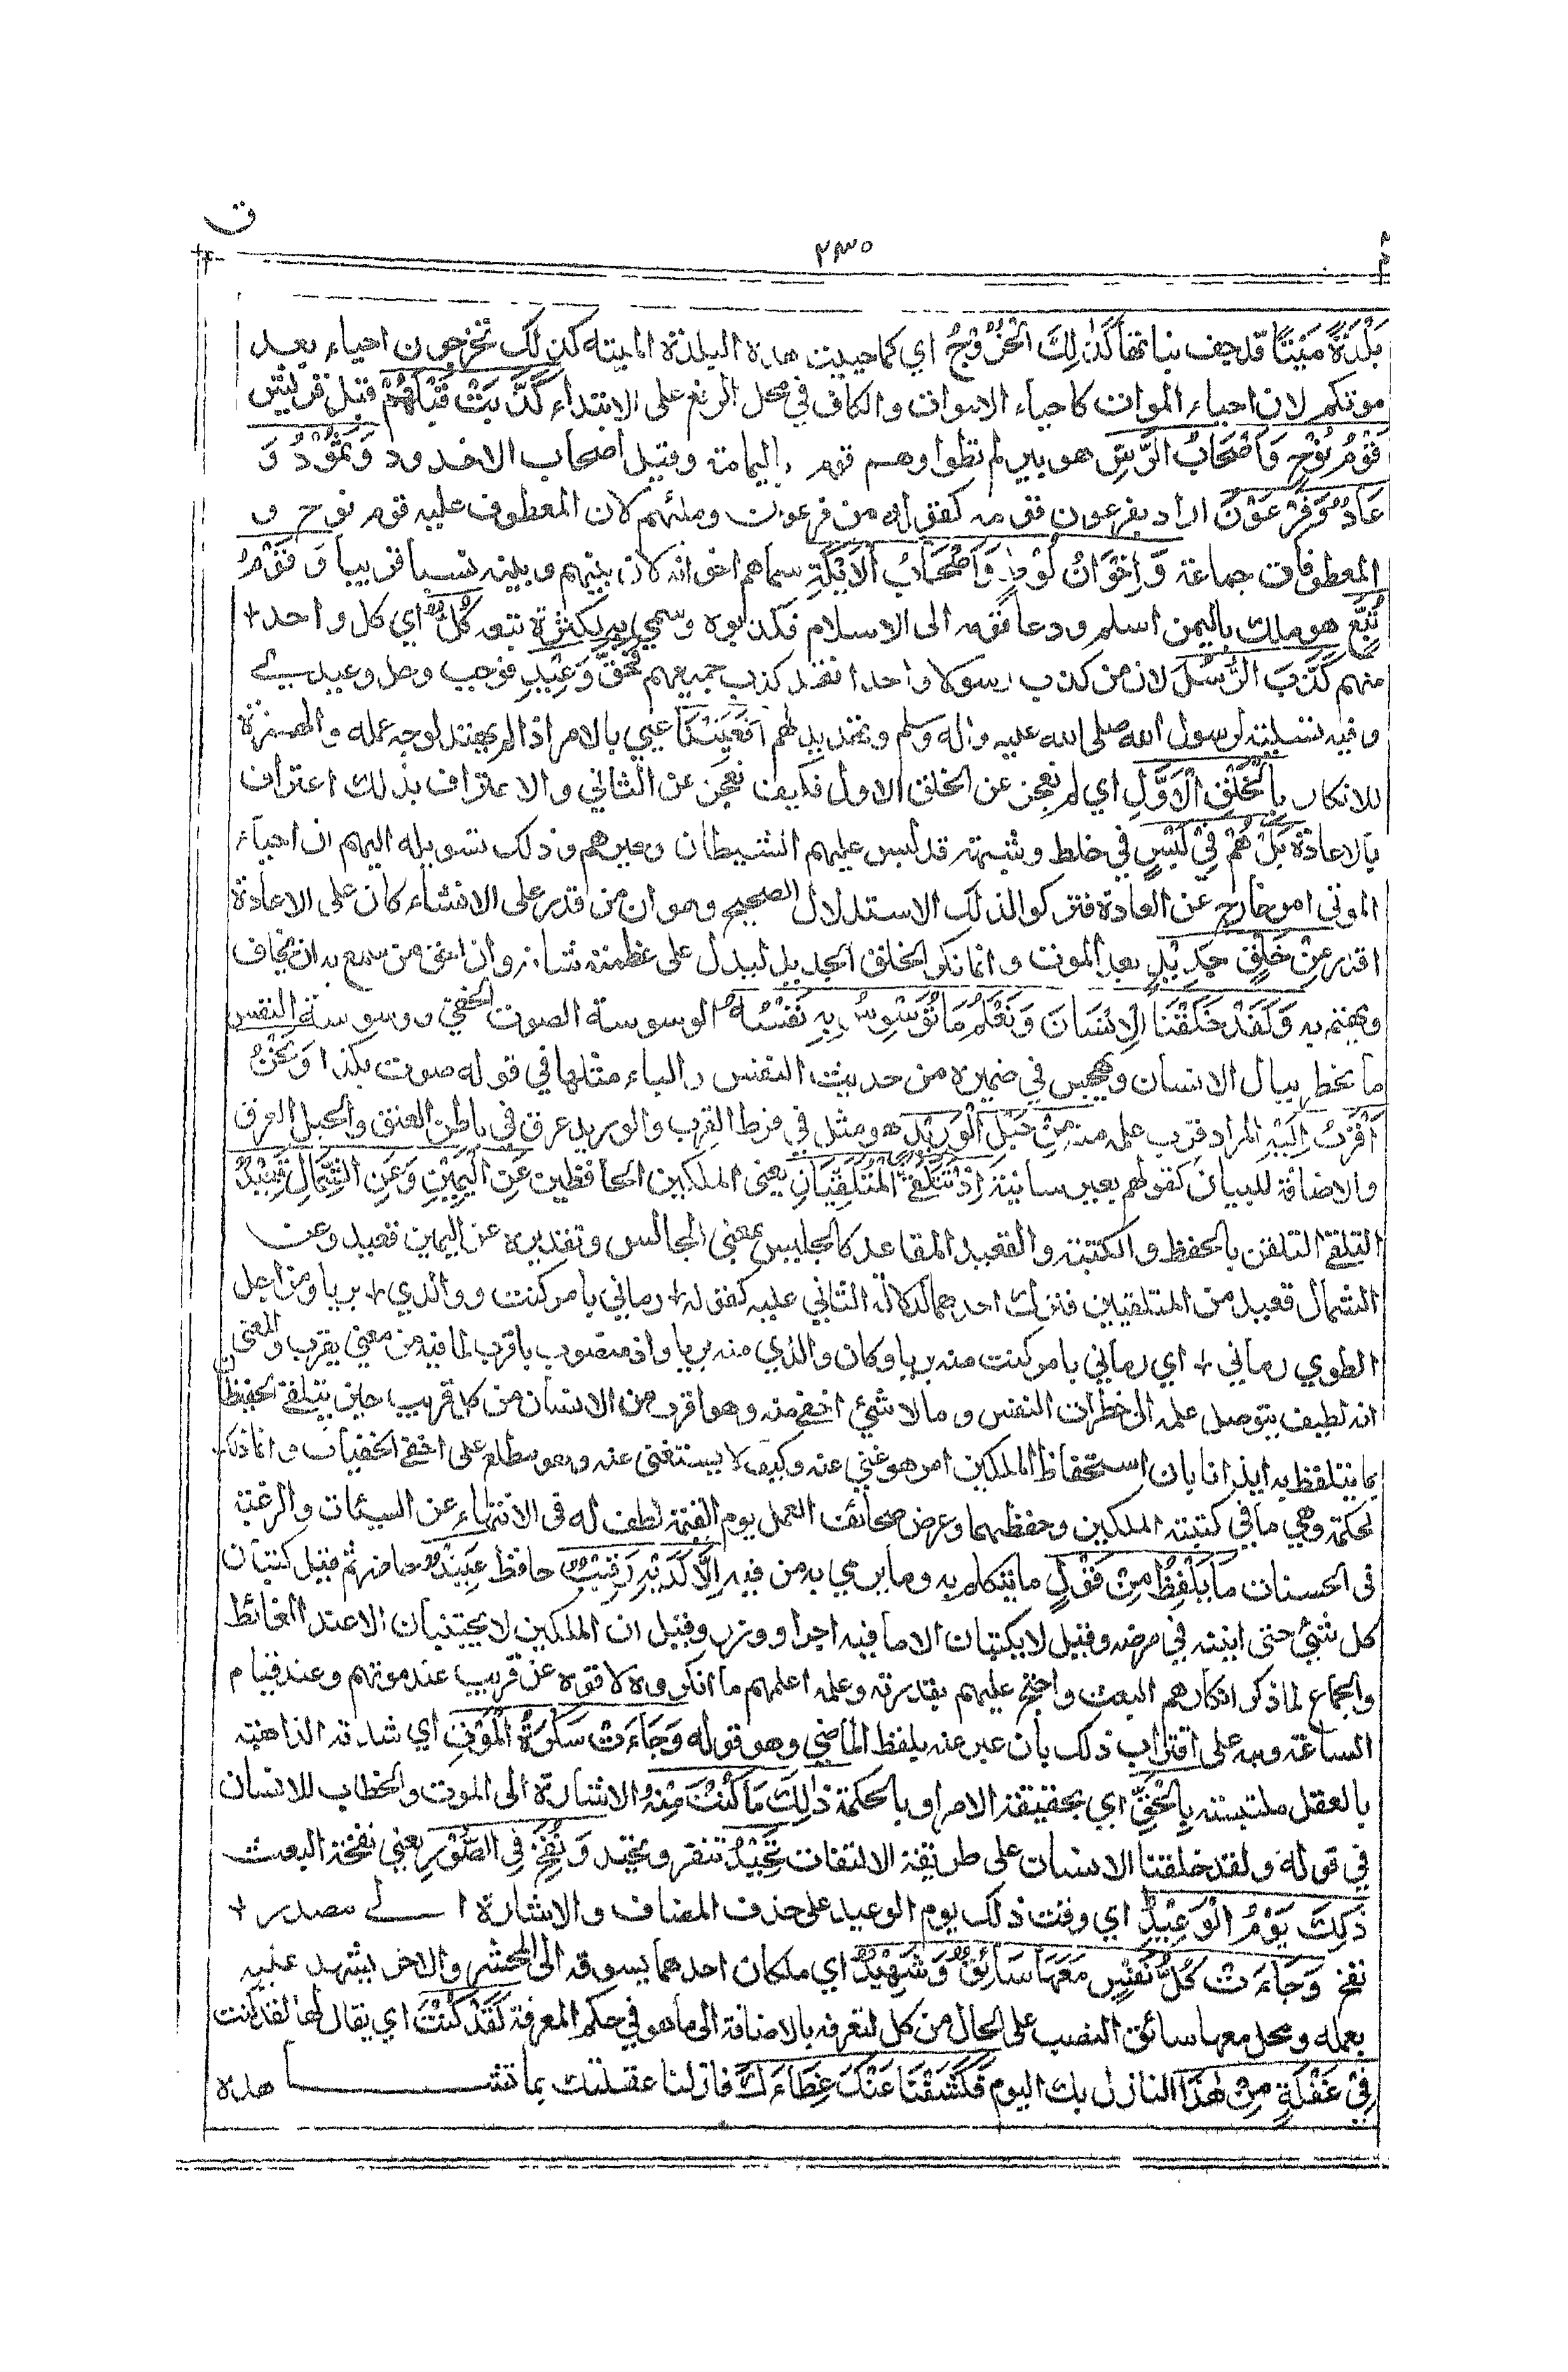 ق
٢٣٥
بَلْدَةً مَيْتًا قد جف نباتها كَذٰلِكَ الْخُرُوْجُ اي كما حييت هذه البلدة الميته كذلك تخرجون احياء بعد
موتكم لان احياء الموات كاحياء الاموات والكاف في محل الرفع على الابتداء كَذَّبَتْ قَبْلَهُمْ قبل قريش
قَوْمُ نُوْحٍ وَاَصْحَابُ الرَّسِّ هو بير لم تطوا وهم قوم باليمامة وقيل اصحاب الاخدود وَثَمُوْدُ وَ
عَادٌ وَفِرْعَوْنُ اراد بفرعون قومه كقوله من فرعون وملئهم لان المعطوف عليه قوم نوح و
المعطوفات جماعة وَاِخْوَانُ لُوْطٍ وَاَصْحَابُ الْاَيْكَةِ سماهم اخوانه لان بينهم وبينه نسبا قريبا وَقَوْمُ
تُبَّعٍ هو ملك باليمن اسلم ودعا قومه الى الاسلام فكذبوه وسمي به لكثرة تبعه كُلٌّ اي كل واحد +
منهم كَذَّبَ الرُّسُلَ لان من كذب رسولا واحدا فقد كذب جميعهم فَحَقَّ وَعِيْدِ فوجب وحل وعيدي
وفيه تسلية لرسول الله صلى الله عليه واله وسلم وتهديد لهم اَفَعَيِيْنَا عيي بالامر اذا لم يهتد لوجه عمله والهمزة
للانكار بِالْخَلْقِ الْاَوَّلِ اي لم نعجز عن الخلق الاول فكيف نعجز عن الثاني والاعتراف بذلك اعتراف
بالاعادة بَلْ هُمْ فِيْ لَبْسٍ في خلط وشبهة قد لبس عليهم الشيطان وحيرهم وذلك تسويله اليهم ان احياء
الموتى امر خارج عن العادة فتركوا لذلك الاستدلال الصحيح وهو ان من قدر على الانشاء كان على الاعادة
اقدر مِنْ خَلْقٍ جَدِيْدٍ بعد الموت وانما نكر الخلق الجديد ليدل على عظمة شانه وان احق من سمع به ان يخاف
ويهتم به وَلَقَدْ خَلَقْنَا الْاِنْسَانَ وَنَعْلَمُ مَا تُوَسْوِسُ بِهِ نَفْسُهٗ الوسوسة الصوت الخفي ووسوسة النفس
ما يخطر ببال الانسان ويهجس في ضميره من حديث النفس والباء مثلها في قوله صوت بكذا وَنَحْنُ
اَقْرَبُ اِلَيْهِ المراد قرب علمه منه مِنْ حَبْلِ الْوَرِيْدِ هو مثل في فرط القرب والوريد عرق في باطن العنق والحبل العرق
والاضافة للبيان كقولهم بعير سانية اِذْ يَتَلَقَّى الْمُتَلَقِّيَانِ يعني الملكين الحافظين عَنِ الْيَمِيْنِ وَعَنِ الشِّمَالِ قَعِيْدٌ
التلقي التلقن بالحفظ والكتبة والقعيد المقاعد كالجليس بمعنى المجالس وتقديره عن اليمين قعيد وعن
الشمال قعيد من المتلقيين فترك احدهما لدلالة الثاني عليه كقوله + رماني بامر كنت ووالدي + بريا ومن اجل
الطوي رماني + اي رماني بامر كنت منه بريا وكان والدي منه بريا واذ منصوب باقرب لما فيه من معنى يقرب والمعنى
انه لطيف يتوصل علمه الى خطرات النفس وما لا شيئ اخفى منه وهو اقرب من الانسان من كل قريب حين يتلقى الحفيظان
بما يتلفظ به ايذانا بان استحفاظ الملكين امر هو غني عنه وكيف لا يستغني عنه وهو مطلع على اخفى الخفيات وانما ذلك
لحكمة وهي ما في كتبة الملكين وحفظهما وعرض صحائف العمل يوم القيمة لطف له في الانتهاء عن السيئات والرغبة
في الحسنات مَا يَلْفِظُ مِنْ قَوْلٍ ما يتكلم به وما يرمي به من فيه اِلَّا لَدَيْهِ رَقِيْبٌ حافظ عَتِيْدٌ حاضر ثم قيل يكتبان
كل شيئ حتى انينه في مرضه وقيل لا يكتبان الا ما فيه اجر او وزر وقيل ان الملكين لا يجتنبان الا عند الغائط
والجماع لما ذكر انكارهم البعث واحتج عليهم بقدرته وعلمه اعلمهم ما انكروه لاقوه عن قريب عند موتهم وعند قيام
الساعة ونبه على اقتراب ذلك بان عبر عنه بلفظ الماضي وهو قوله وَجَاءَتْ سَكْرَةُ الْمَوْتِ اي شدته الذاهبة
بالعقل ملتبسة بِالْحَقِّ اي بحقيقة الامر او بالحكمة ذٰلِكَ مَا كُنْتَ مِنْهُ الاشارة الى الموت والخطاب للانسان
في قوله ولقد خلقنا الانسان على طريقة الالتفات تَحِيْدُ تنفر وتحيد وَنُفِخَ فِي الصُّوْرِ يعني نفخة البعث
ذٰلِكَ يَوْمُ الْوَعِيْدِ اي وقت ذلك يوم الوعيد على حذف المضاف والاشارة الى مصدر +
نفخ وَجَاءَتْ كُلُّ نَفْسٍ مَعَهَا سَائِقٌ وَشَهِيْدٌ اي ملكان احدهما يسوقه الى المحشر والاخر يشهد عليه
بعمله ومحل معها سائق النصب على الحال من كل لتعرفه بالاضافة الى ما هو في حكم المعرفة لَقَدْ كُنْتَ اي يقال لها لقد كنت
فِيْ غَفْلَةٍ مِنْ هٰذَا النازل بك اليوم فَكَشَفْنَا عَنْكَ غِطَاءَكَ فازلنا غفلتك بما تشا هده